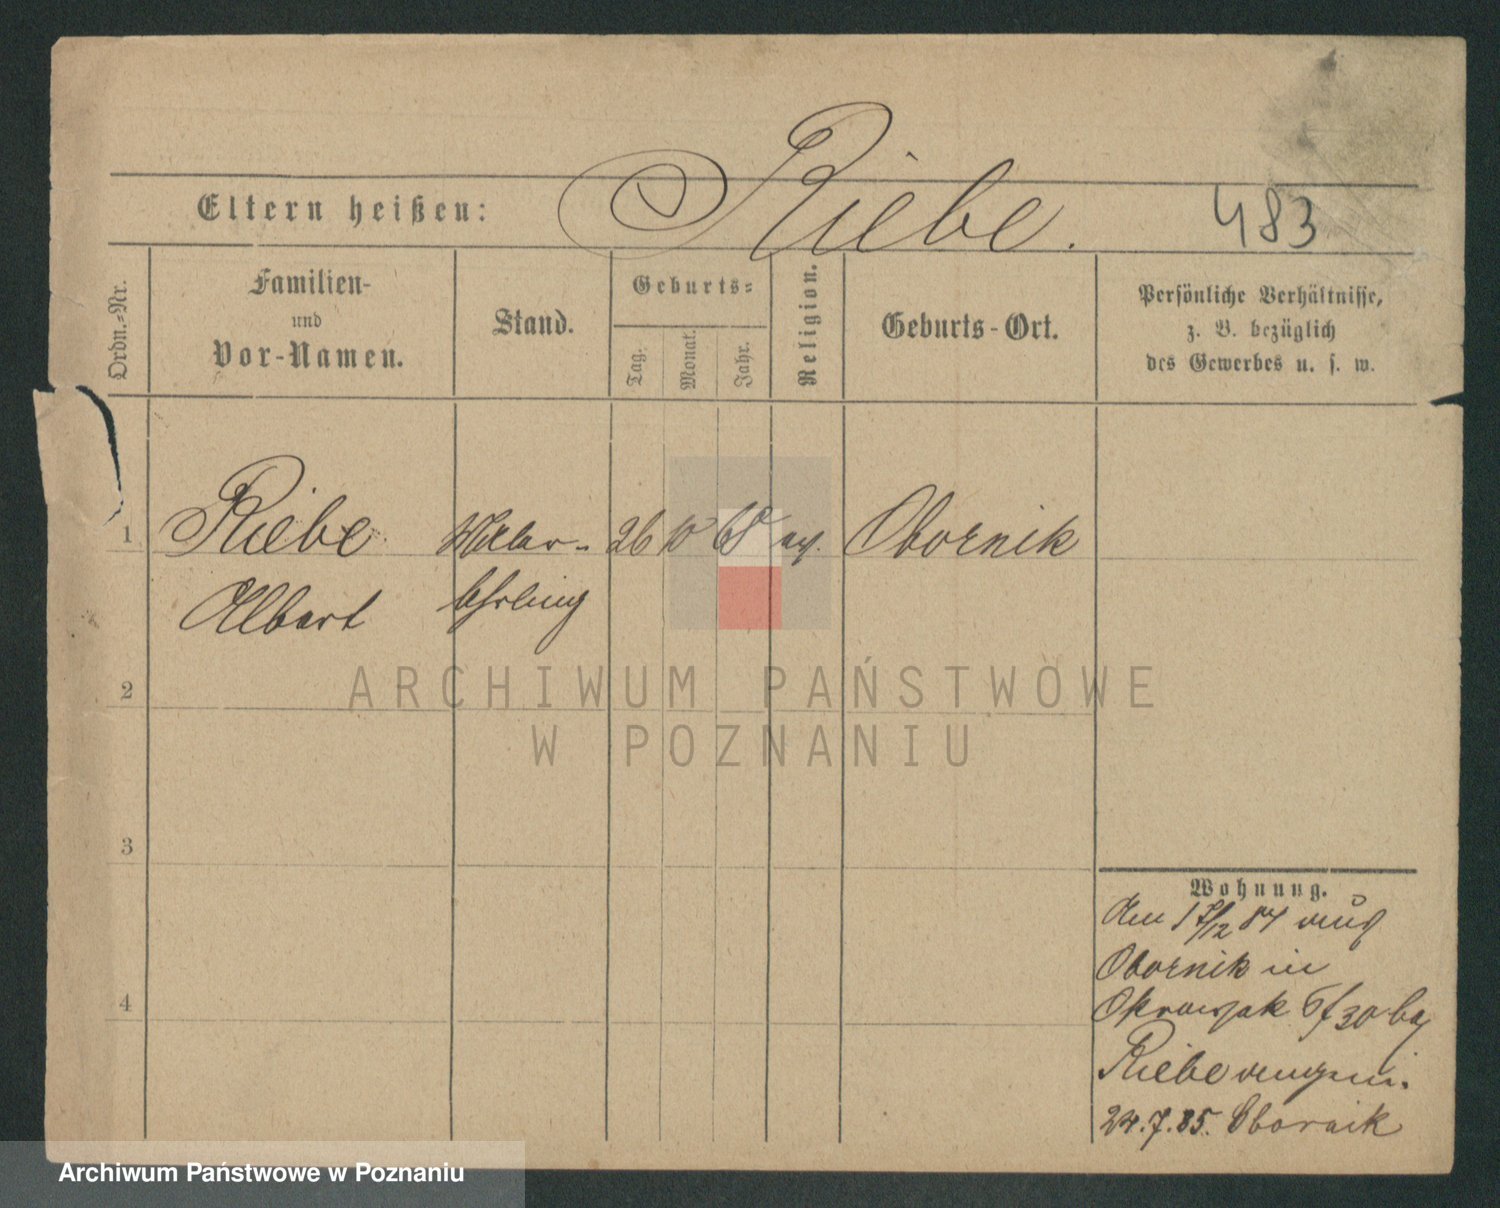 Riebe.
Eltern heißen:
483
Ordn.-Nr.
Familien-
und
Vor-Namen.
Stand.
Geburts-
Tag.
Monat.
Jahr.
Religion.
Geburts-Ort.
Persönliche Verhältnisse,
z. B. bezüglich
des Gewerbes u. s. w.
1
Riebe
Maler-
26
10
68
ev.
Obornik
Albert
lehrling
2
3
4
Wohnung.
Am 17/12 84 aus
Obornik in
6/30 bei
Riebe
24.7.85. Obornik
ARCHIWUM PAŃSTWOWE
W POZNANIU
Archiwum Państwowe w Poznaniu